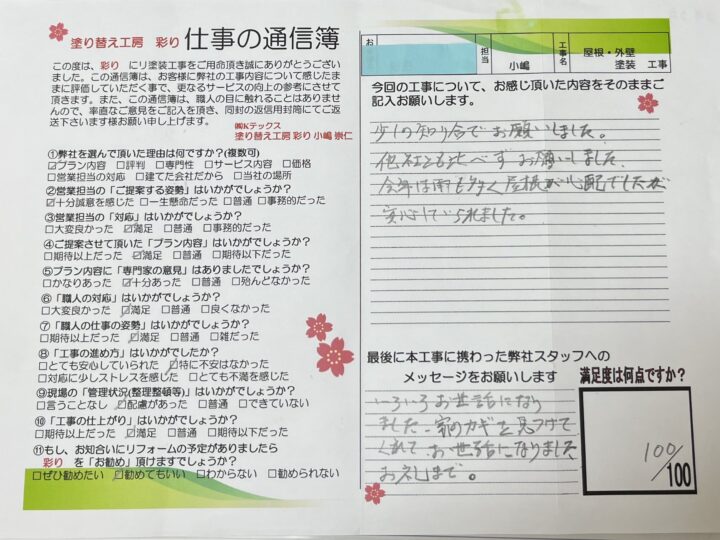 塗り替え工房 彩り 仕事の通信簿
この度は、彩り にリ塗装工事をご用命頂き誠にありがとうござい
ました。この通信簿は、お客様に弊社の工事内容について感じたま
まに評価していただく事で、更なるサービスの向上の参考にさせて
頂きます。また、この通信簿は、職人の目に触れることはありませ
んので、率直なご意見をご記入を頂き、同封の返信用封筒にてご返
送下さいます様お願い申し上げます。
㈱Kテックス
塗り替え工房 彩り 小嶋 崇仁
①弊社を選んで頂いた理由は何ですか?(複数可)
☑プラン内容 □評判 □専門性 □サービス内容 □価格
□営業担当の対応 □建てた会社だから □当社の場所
②営業担当の「ご提案する姿勢」はいかがでしょうか?
☑十分誠意を感じた □一生懸命だった □普通 □事務的だった
③営業担当の「対応」はいかがでしょうか?
□大変良かった ☑満足 □普通 □事務的だった
④ご提案させて頂いた「プラン内容」はいかがでしょうか?
□期待以上だった ☑満足 □普通 □期待以下だった
⑤プラン内容に「専門家の意見」はありましたでしょうか?
□かなりあった ☑十分あった □普通 □殆んどなかった
⑥「職人の対応」はいかがでしょうか?
□大変良かった ☑満足 □普通 □良くなかった
⑦「職人の仕事の姿勢」はいかがでしょうか?
□期待以上だった ☑満足 □普通 □雑だった
⑧「工事の進め方」はいかがでしたか?
□とても安心していられた ☑特に不安はなかった
□対応に少しストレスを感じた □とても不満を感じた
⑨現場の「管理状況(整理整頓等)」はいかがでしょうか?
□言うことなし ☑配慮があった □普通 □できていない
⑩「工事の仕上がり」はいかがでしょうか?
□期待以上だった ☑満足 □普通 □期待以下だった
⑪もし、お知合いにリフォームの予定がありましたら
彩り を「お勧め」頂けますでしょうか?
□ぜひ勧めたい ☑勧めてもいい □わからない □勧められない
お
担当
小嶋
工事名
屋根・外壁
塗装 工事
今回の工事について、お感じ頂いた内容をそのままご
記入お願いします。
少しの知り合いでお願いしました。
他社とも比べずお願いしました、
今年は雨も多く屋根が心配でしたが
安心していられました。
最後に本工事に携わった弊社スタッフへの
メッセージをお願いします
いろいろお世話になり
ました。家のカギを見つけて
くれて、お世話になりました
お礼まで。
満足度は何点ですか?
100
/100